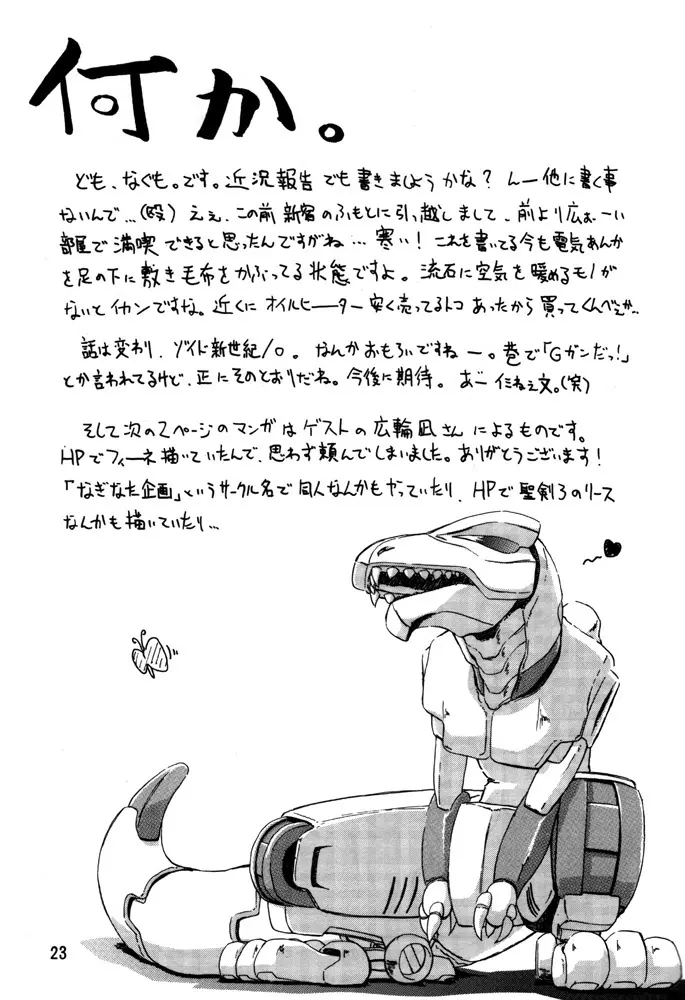 何か。
ども、なぐも。です。近況報告でも書きましようかな？んー他に書く事
ないんで…(殴) ええ、この前新宿のふもとに引っ越しまして、前より広ぉーい
部屋で満喫できると思ったんですがね…寒い！これを書いてる今も電気あんか
を足の下に敷き毛布をかぶってる状態ですよ。流石に空気を暖めるモノが
ないとイカンですな。近くにオイルヒーター安く売ってるトコあったから買ってくんべぇか…
話は変わり、ゾイド新世紀/0。なんかおもろいですねー。巷で「Gガンだっ！」
とか言われてるけど、正にそのとおりだね。今後に期待。あー仁ねぇ文。(笑)
そして次の2ページのマンガはゲストの広輪凪さんによるものです。
HPでフィーネ描いていたんで、思わず頼んでしまいました。ありがとうございます！
「なぎなた企画」というサークル名で同人なんかもやっていたり、HPで聖剣3のリース
なんかも描いていたり…
23